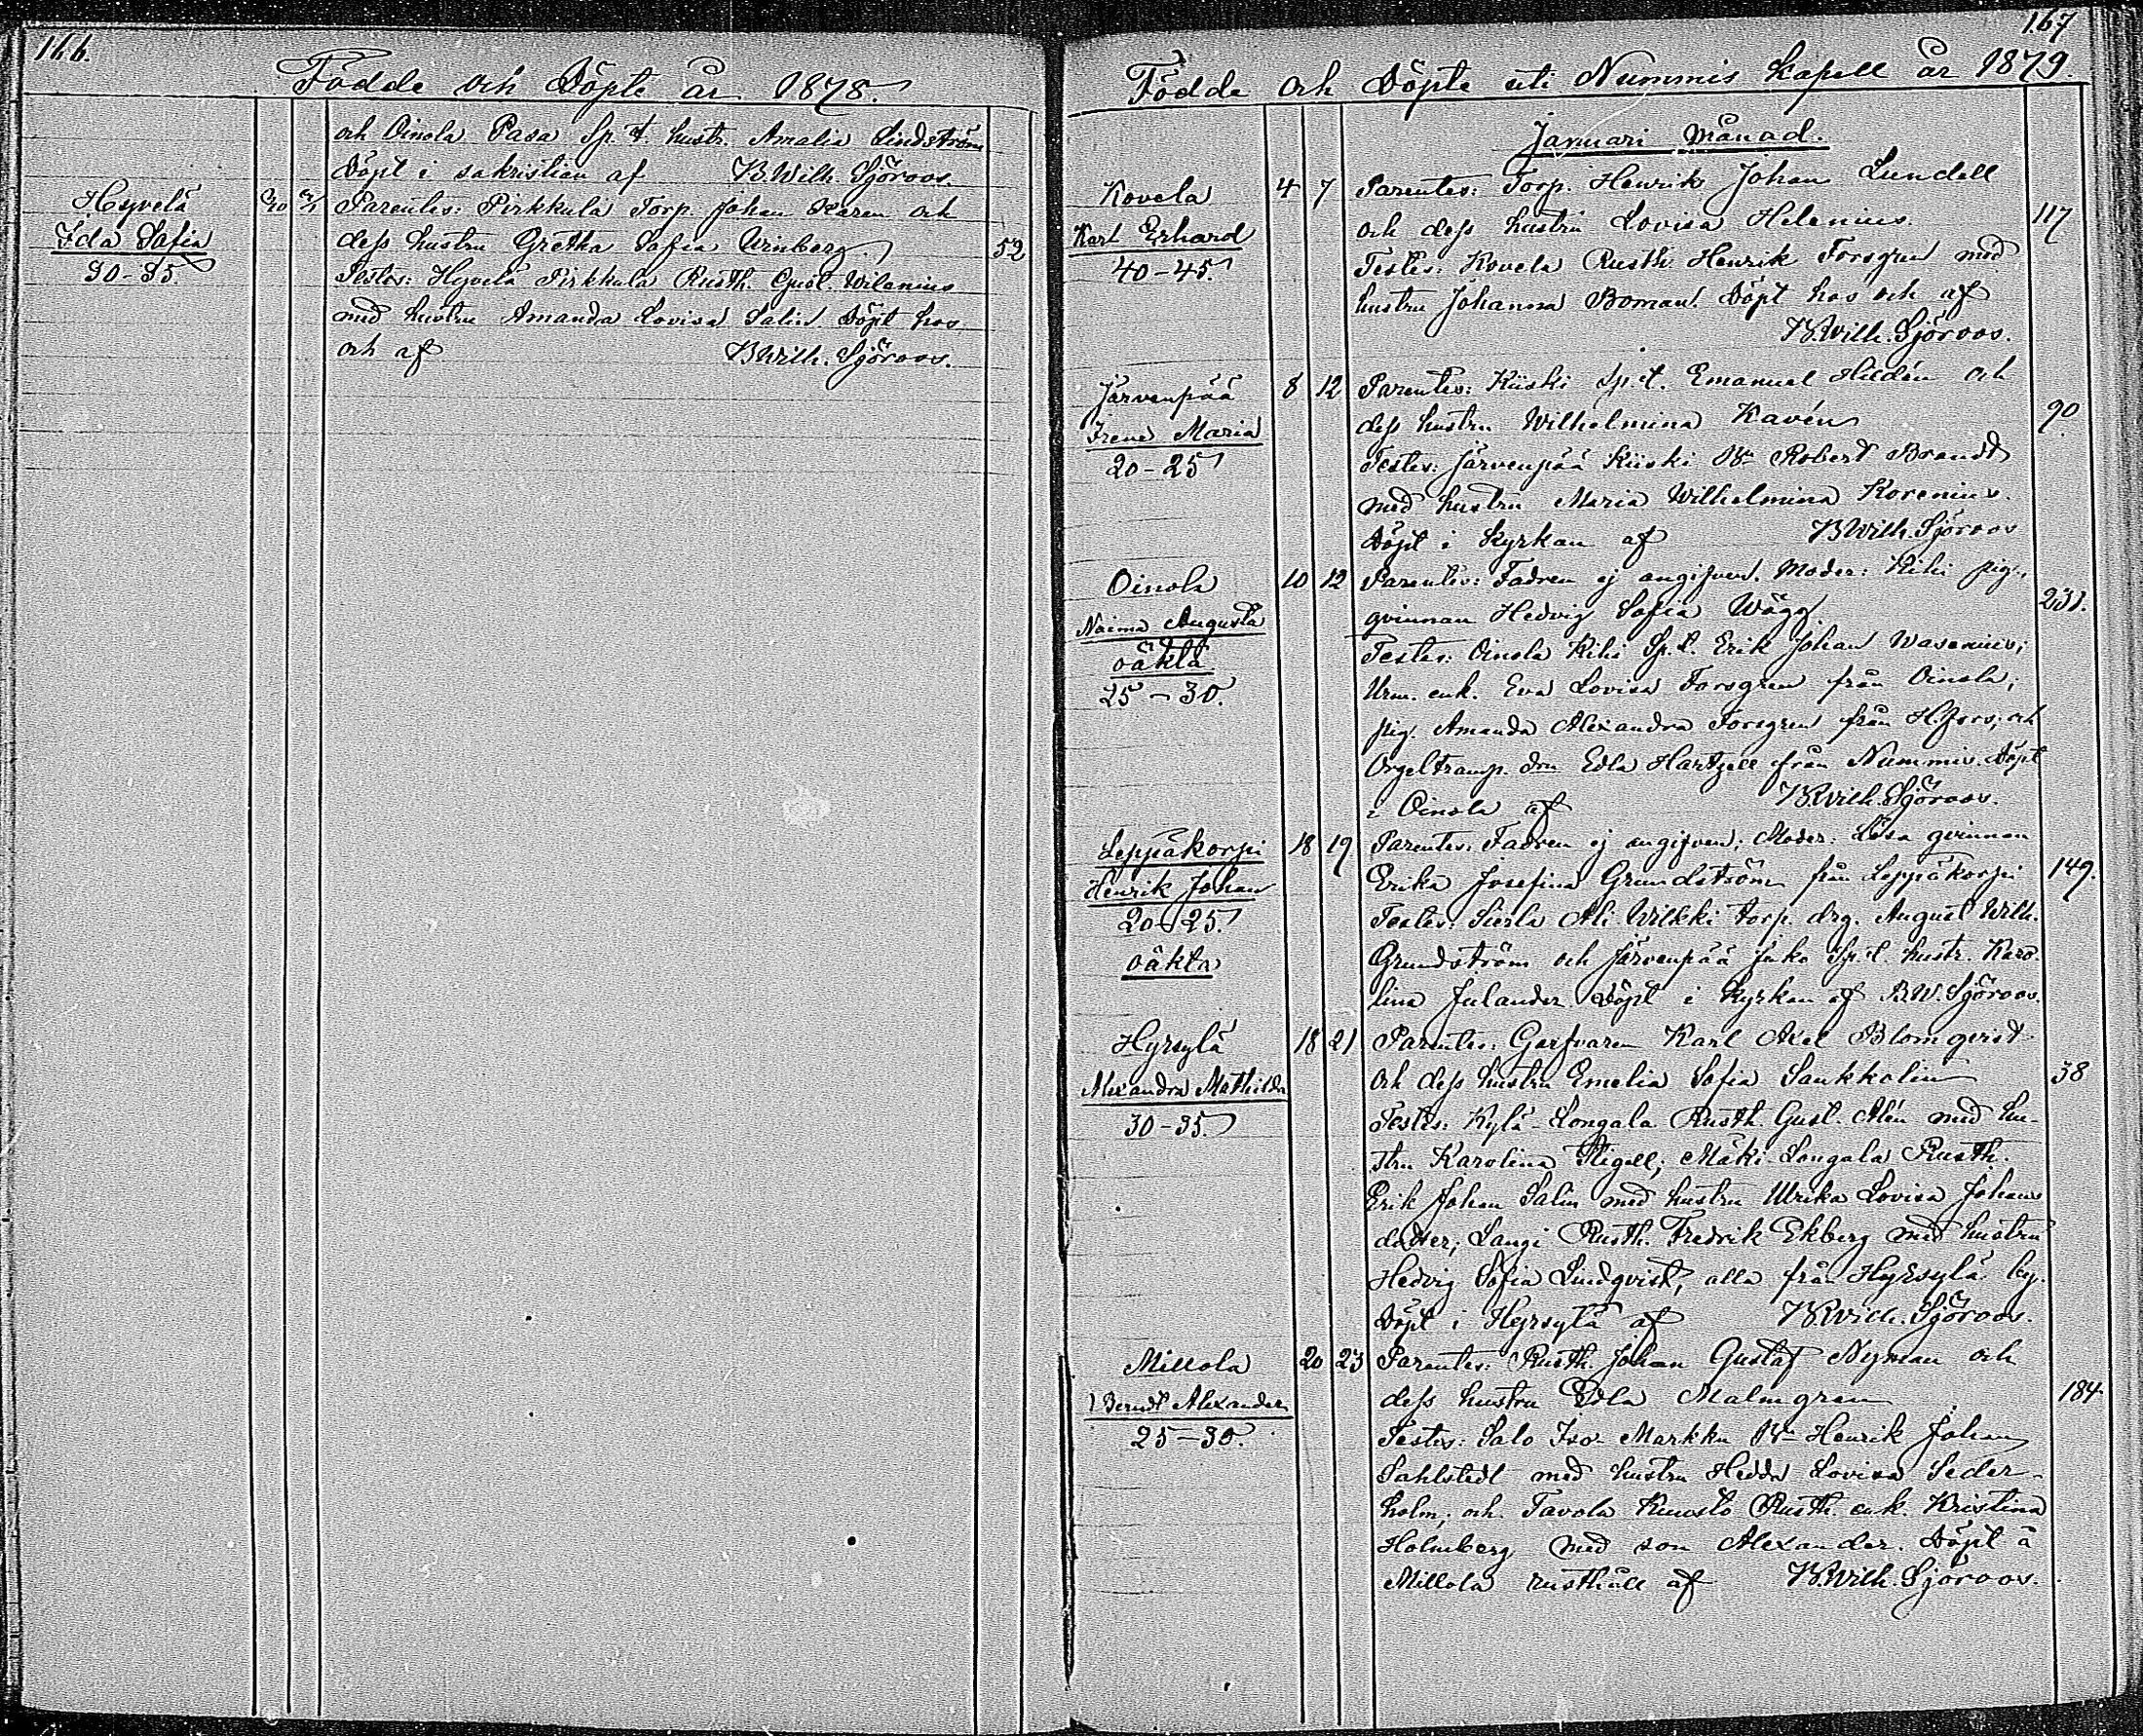 166.
Födde och Döpte år 1878.
och Oinola Pasa Sp. t. hustr. Amalia Lindström
Döpt i sakristian af B. Wilh. Sjöroos.
Hyvelä 30 Parentes: Pirkkulä Torp. Johan Karen och
Ida Sofia dess hustru Gretha Sofia Winberg. 52
30-35. Testes: Hyvelä Pirkkula Rusth. Gust. Wilenius
med hustru Amanda Lovisa Salin. Döpt hos
och af B Wilh. Sjöroos.
167
Födde och Döpte uti Nummis kapell år 1879.
Januari Månad.
Kovela 4 7 Parentes: Torp. Henrik Johan Lundell
Karl Erhard och dess hustru Lovisa Helenius. 117
40-45. Testes: Kovela Rusth. Henrik Forsgren med
hustru Johanna Boman. Döpt hos och af
B. Wilh. Sjöroos.
Järvenpää 8 12 Parentes: Kiiski Sp. t. Emanuel Hildén och
Irene Maria dess hustru Wilhelmina Kavén 90.
20-25 Testes: Järvenpää Kiiski Bn Robert Brandt
med hustru Maria Wilhelmina Korenius.
Döpt i Kyrkan af B Wilh. Sjöroos
Oinola 10 12 Parentes: Fadren ej angifven. Moder: Kihi pig.,
Naima Augusta qvinnan Hedvig Sofia Wägg 231.
oäkta Testes: Oinola Kihi Sp. t. Erik Johan Wasenius;
25-30. Urm. enk. Eva Lovisa Forsgren från Oinola;
pig. Amanda Alexandra Forsgren från H.fors; och
Orgeltramp. dtr. Edla Hartzell från Nummis. Döpt
i Oinola af B. Wilh. Sjöroos.
Leppäkorpi 18 19 Parentes: Fadren ej angifven; Moder: Lösa qvinnan
Henrik Johan Erika Josefina Grundström från Leppäkorpi 149.
20-25. Testes: Sierla Ali Wilkki torp. drg. August Wilh.
oäkta Grundström och Järvenpää Juko Sp. t. hustr. Karo-
lina Julander. Döpt i Kyrkan af B.W. Sjöroos.
Hyrsylä 18 21 Parentes: Garfvaren Karl Axel Blomqvist
Alexandra Mathilda och dess hustru Emelia Sofia Saukkolin 38
30-35. Testes: Kylä-Longala Rusth. Gust. Alén med hu-
stru Karolina Stigell; Mäki-Longala Rusth.
Erik Johan Salin med hustru Ulrika Lovisa Johans
dotter; Langi Rusth. Fredrik Ekberg med hustru
Hedvig Sofia Lindqvist, alla från Hyrsylä by.
Döpt i Hyrsylä af B. Wilh. Sjöroos.
Millola 20 23 Parentes: Rusth. Johan Gustaf Nyman och
Berndt Alexander dess hustru Edla Malmgren 184
25-30. Testes: Salo Iso-Markku Bn Henrik Johan
Sahlstedt med hustru Hedda Lovisa Seder-
holm; och Tavola Rusth. enk. Kristina
Holmberg med son Alexander. Döpt å
Millola rusthåll af B. Wilh. Sjöroos.